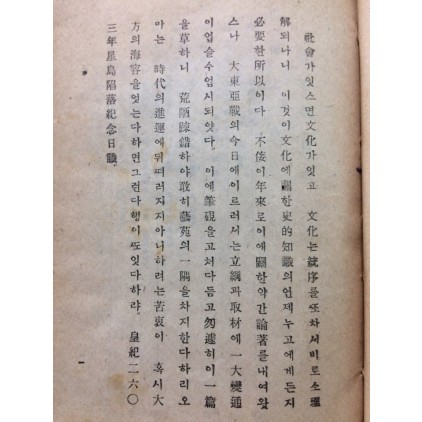 社會가잇스면文化가잇고 文化는統序를또차서비로소理
解되나니 이것이文化에關한史的知識의언제누고에게든지
必要한所以이다 不佞이年來로이에關한약간論著를내여왓
스나 大東亞戰의今日에이르러서는立綱과取材에一大變通
이업슬수업시되얏다. 이에筆硯을고처다듬고勿遽히이一篇
을草하니 荒陋踈錯하야敢히藝苑의一隅을차지한다하리오
마는 時代의進運에뒤떠러지지아니하려는苦衷이 혹시大
方의海容을엇는다하면그런다행이또잇다하랴. 皇紀二六〇
三年星島陷落紀念日識